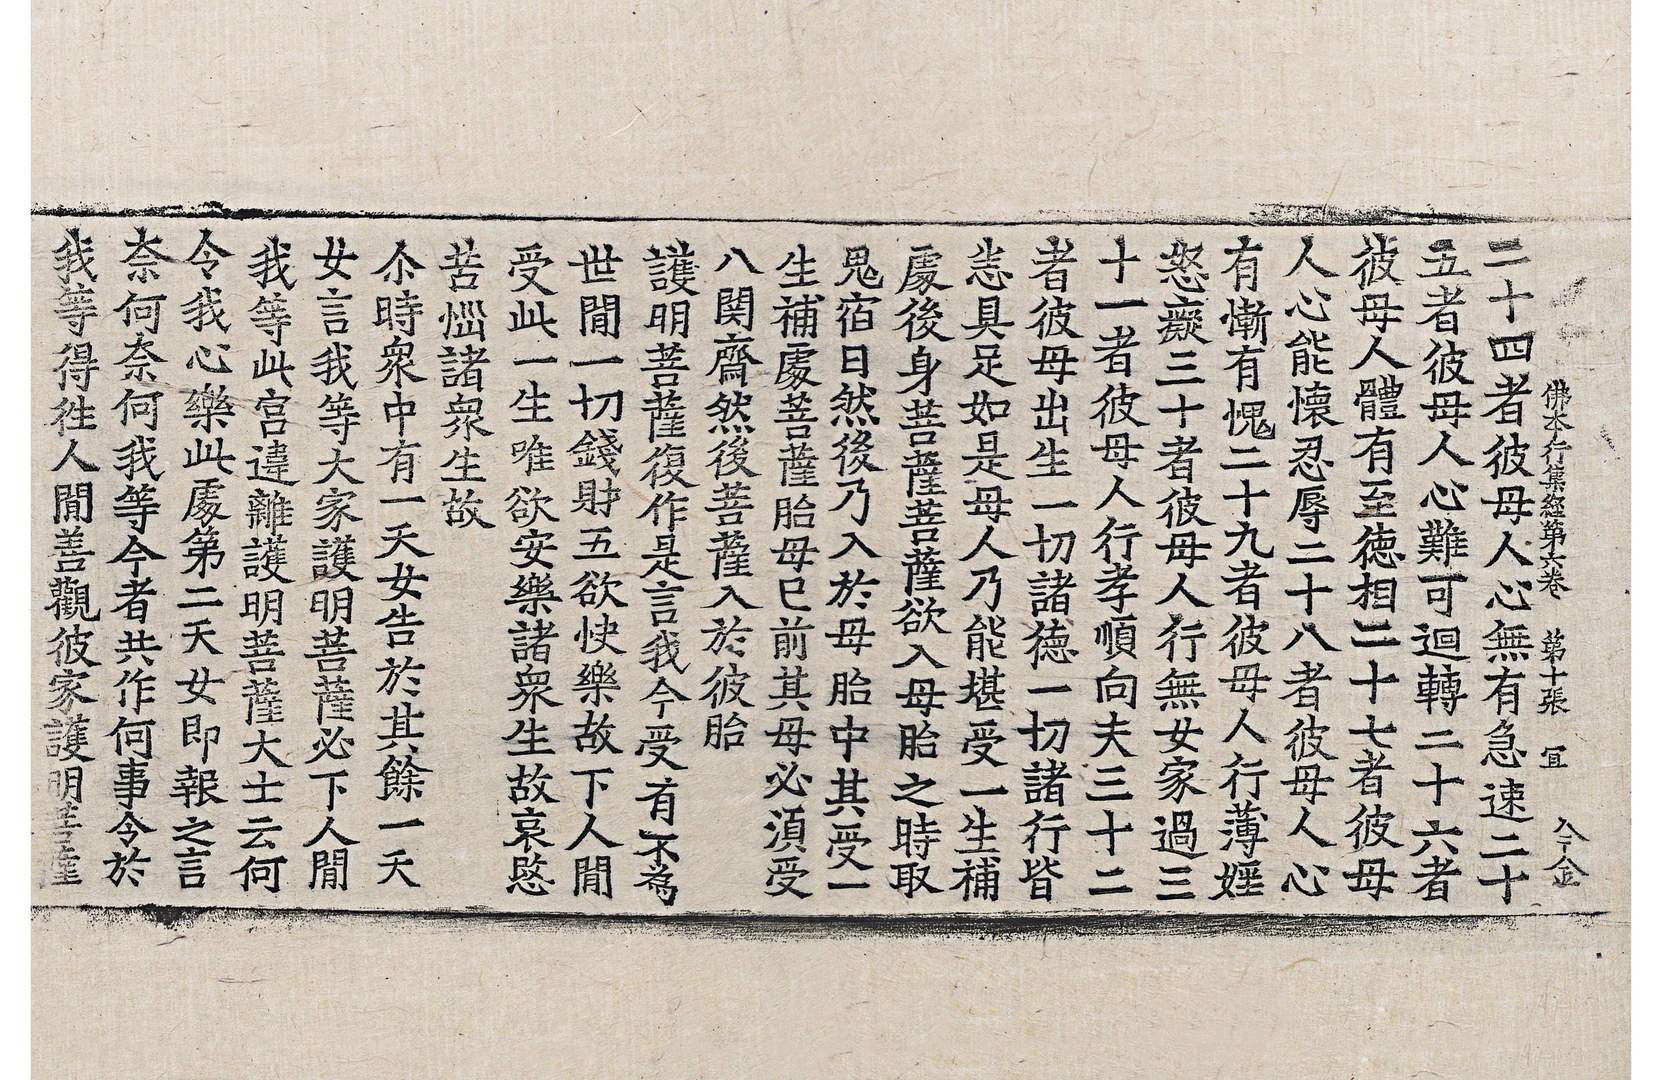 佛本行集經第六卷　第十張　冝　仐金
二十四者彼母人心無有急速二十
五者彼母人心難可迴轉二十六者
彼母人體有至德相二十七者彼母
人心能懷忍辱二十八者彼母人心
有慚有愧二十九者彼母人行薄婬
怒癡三十者彼母人行無女家過三
十一者彼母人行孝順向夫三十二
者彼母出生一切諸德一切諸行皆
悉具足如是母人乃能堪受一生補
處後身菩薩菩薩欲入母胎之時取
鬼宿日然後乃入於母胎中其受一
生補處菩薩胎母已前其母必須受
八関齋然後菩薩入於彼胎
護明菩薩復作是言我今受有不爲
世閒一切錢財五欲快樂故下人閒
受此一生唯欲安樂諸衆生故哀愍
苦惱諸衆生故
尒時衆中有一天女告於其餘一天
女言我等大家護明菩薩必下人閒
我等此宮違離護明菩薩大士云何
令我心樂此處第二天女即報之言
柰何柰何我等今者共作何事令於
我等得往人閒善觀彼家護明菩薩